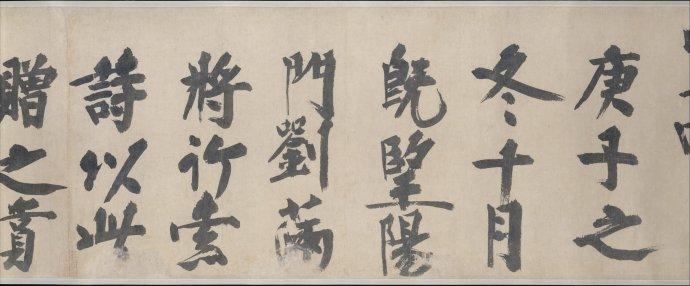 庚子之
冬十月
既望陽
門劉
將行索
詩以此
贈之